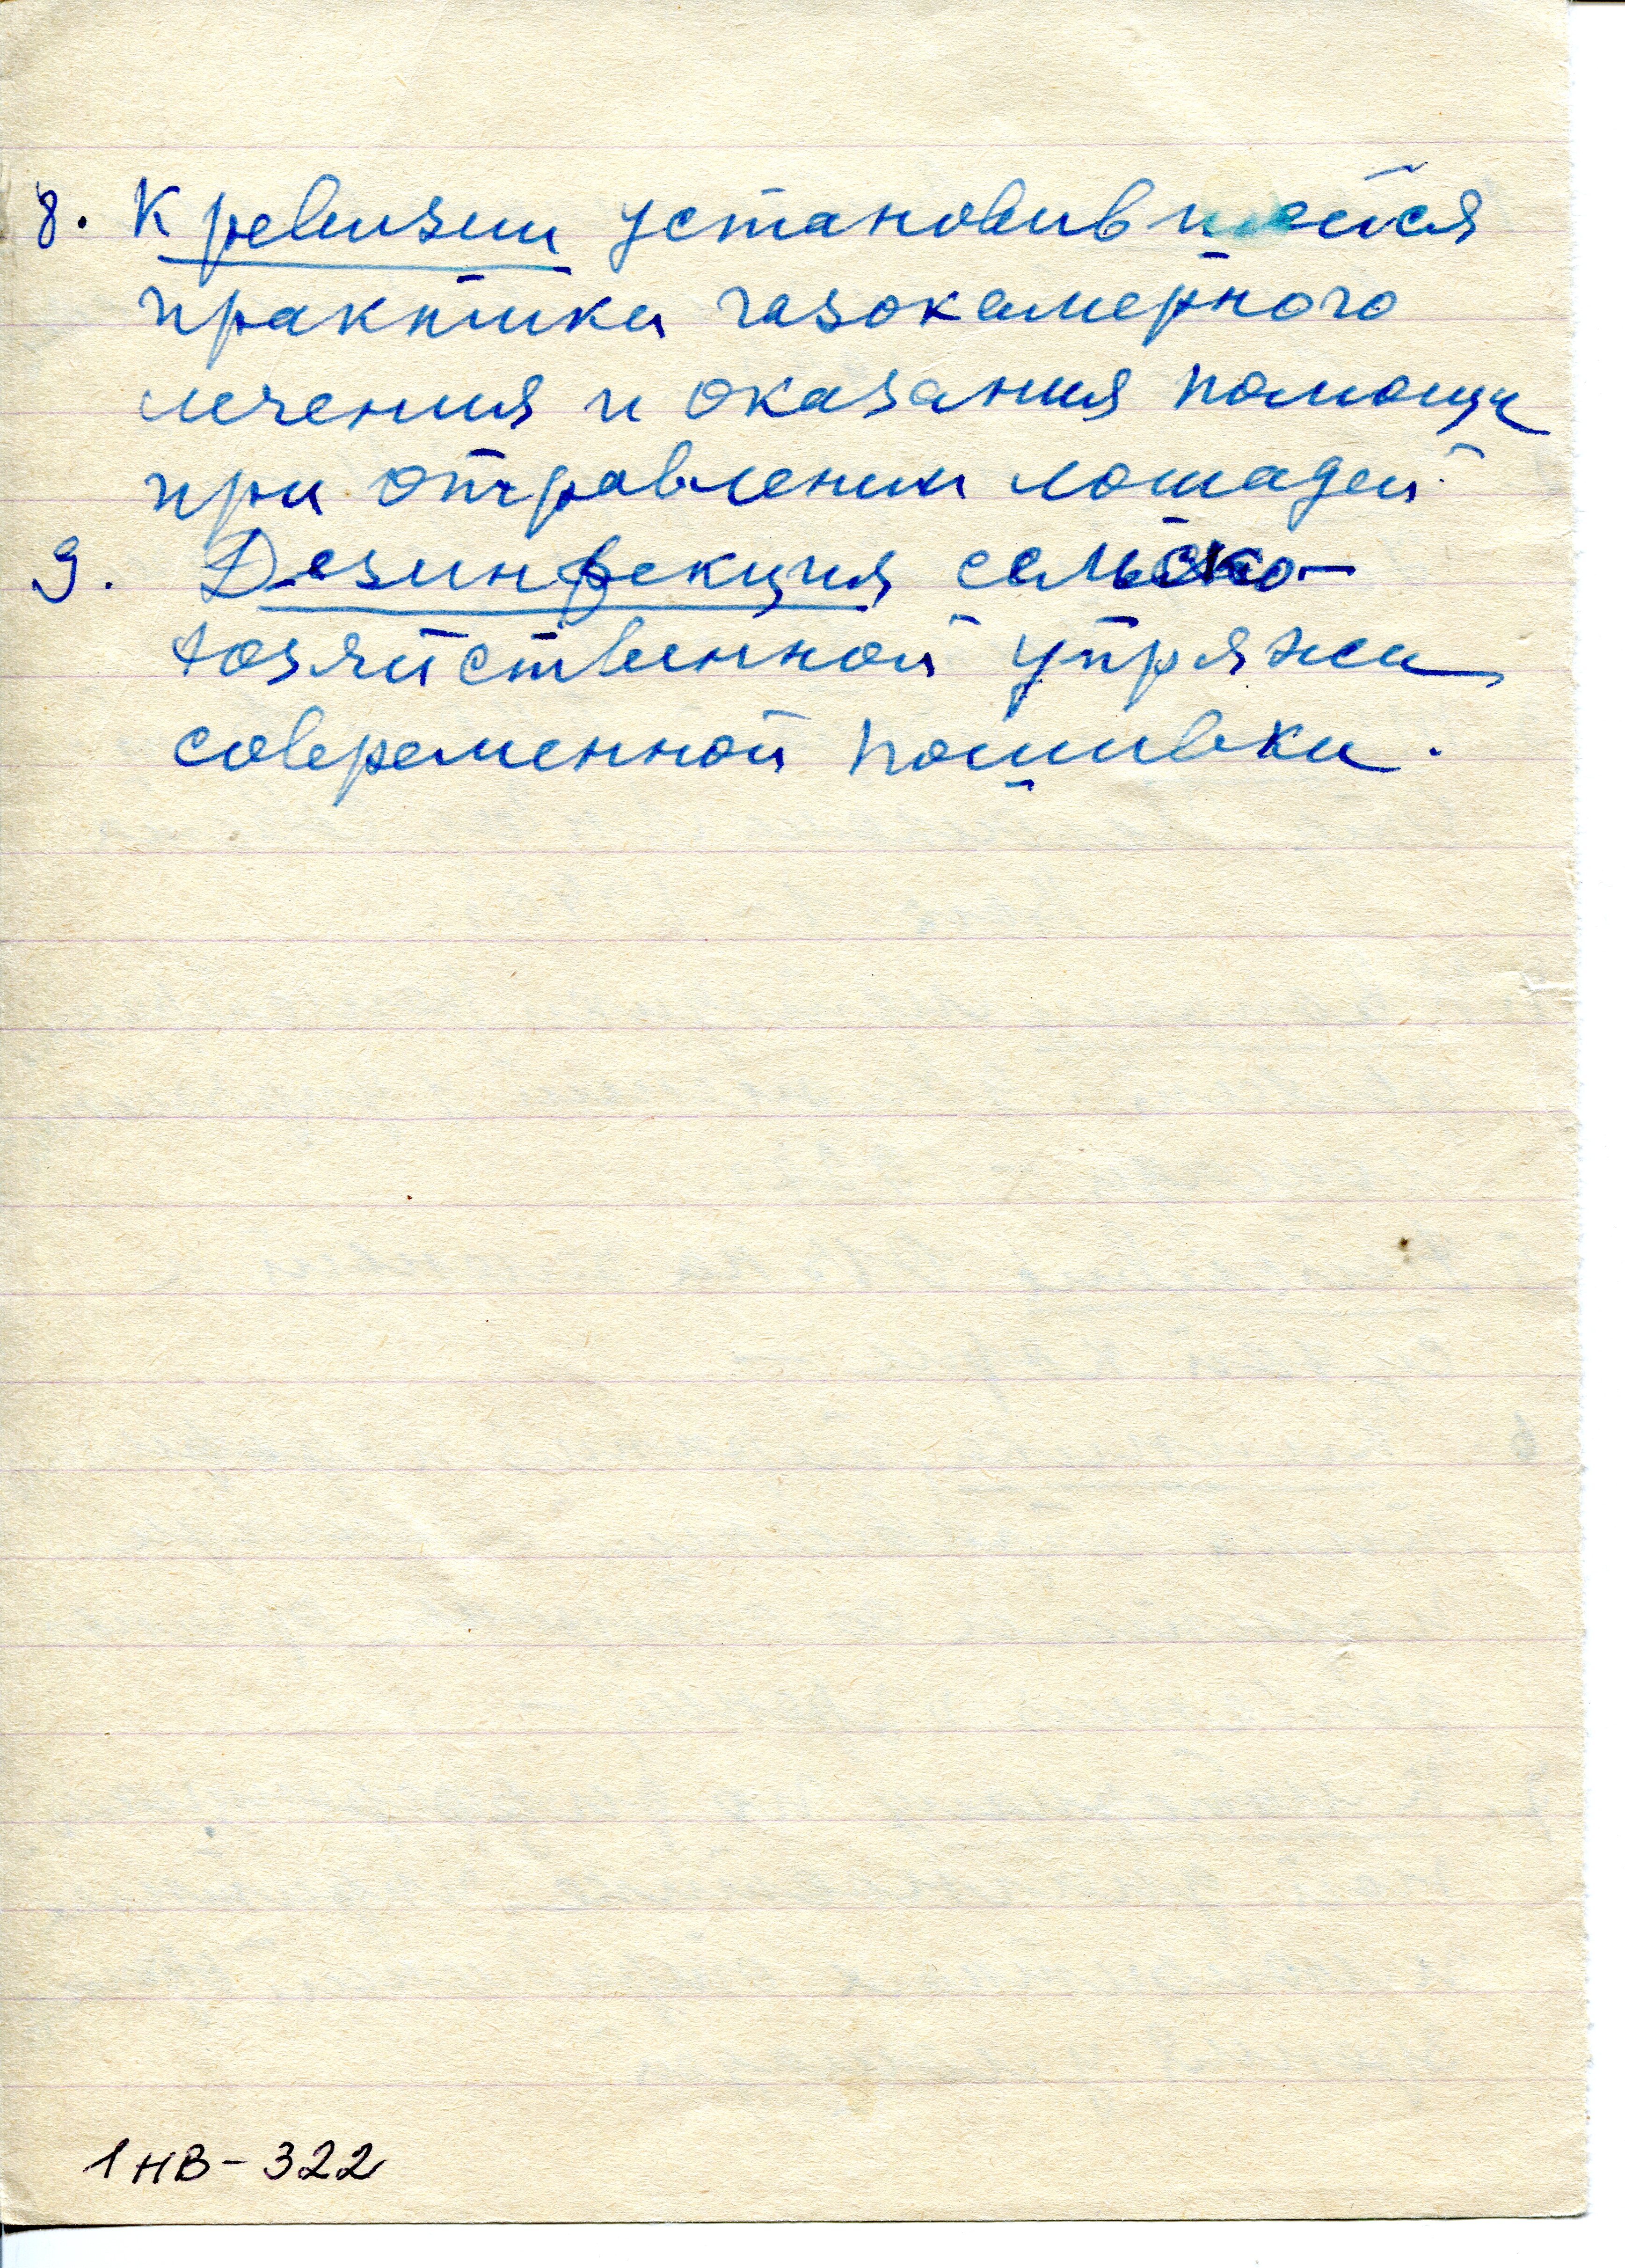 8. К ревизии установившейся
практики газокамерного
лечения и оказания помощи
при отравлении лошадей
9. Дезинфекция сельско-
хозяйственной упряжи
современной пошивки.
1 НВ - 322